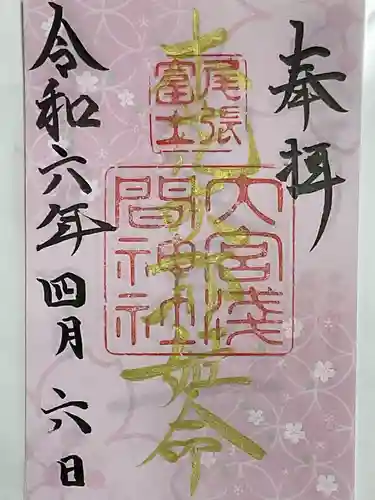 奉拝
木花開耶姫命
尾張
富士
大宮浅
間神社
令和六年四月六日